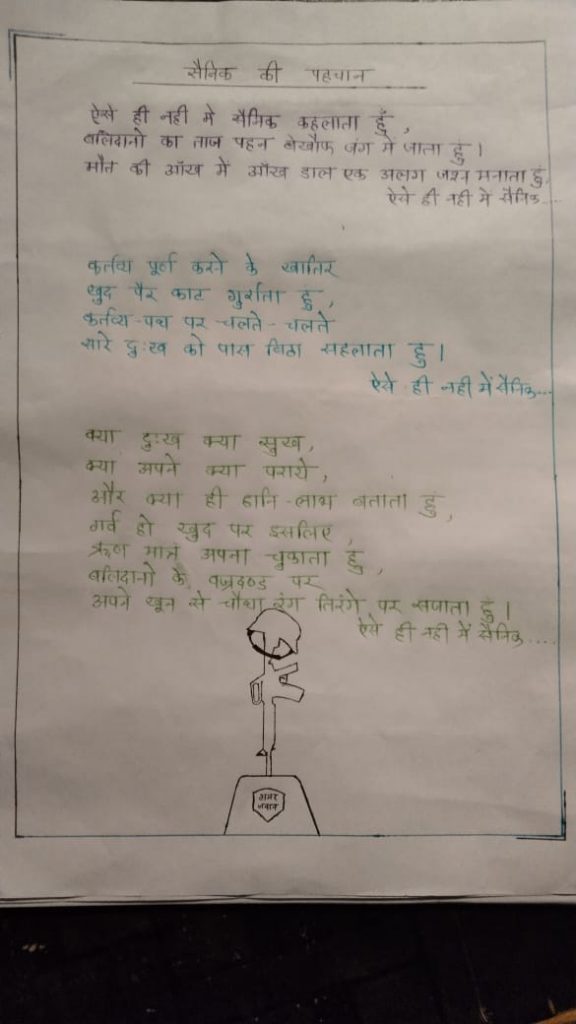 सैनिक की पहचान
ऐसे ही नही मे सैनिक कहलाता हूँ,
बलिदानो का ताज पहन बेखौफ जंग मे जाता हुं।
मौत की आँख मे आँख डाल एक अलग जश्न मनाता हुं,
ऐसे ही नही मे सैनिक....
कर्तव्य पूर्ण करने के खातिर
खुद पैर काट गुर्राता हुं,
कर्तव्य-पथ पर चलते-चलते
सारे दुःख को पास बिठा सहलाता हुं।
ऐसे ही नही में सैनिक...
क्या दुःख क्या सुख,
क्या अपने क्या पराये,
और क्या ही हानि-लाभ बताता हुं,
गर्व हो खुद पर इसलिए,
ऋण मात्र अपना चुकाता हुं,
बलिदानो के वज्रदण्ड पर
अपने खून से चौथा रंग तिरंगे पर सजाता हुं।
ऐसे ही नही में सैनिक....
अमर
जवान